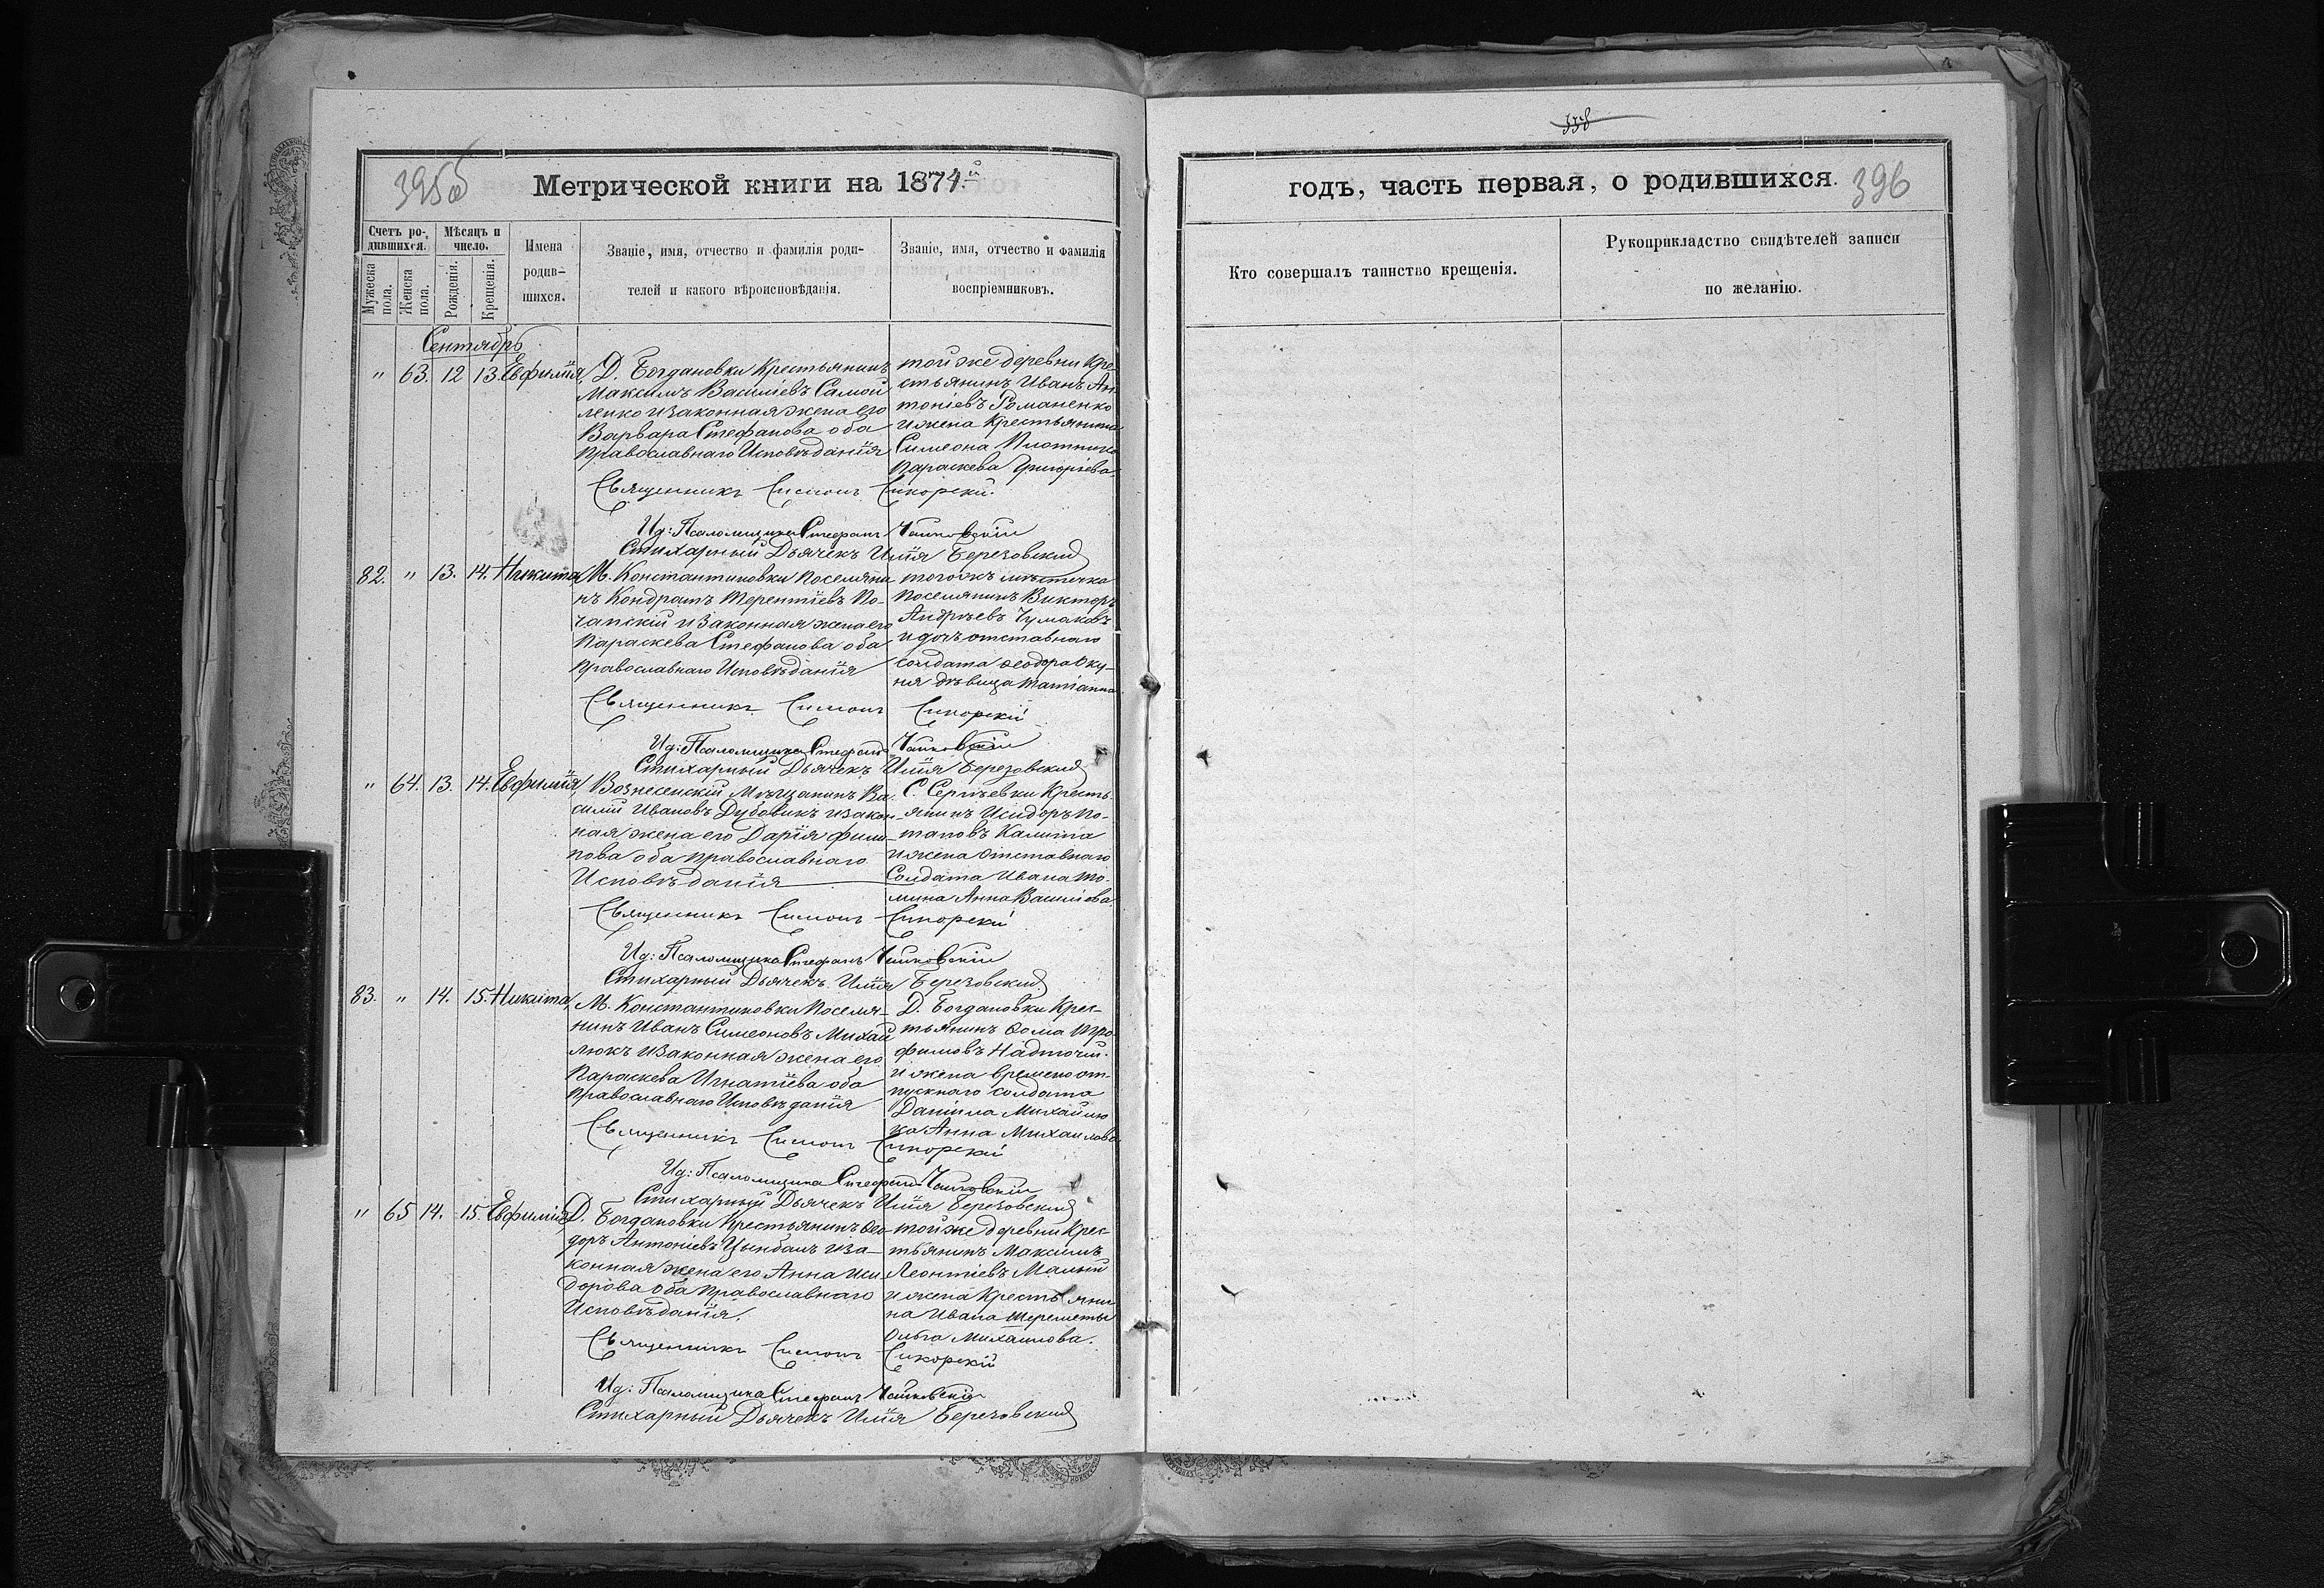 338
395об
Метрической книги на 1874.й
годъ, часть первая, о родившихся.
396
Счетъ родившихся.
Мужеска пола.
Женска пола.
Мѣсяцъ и число.
Рожденія.
Крещенія.
Имена родившихся.
Званіе, имя, отчество и фамилія родителей и какого вѣроисповѣданія.
Званіе, имя, отчество и фамилія воспріемниковъ.
Кто совершалъ таинство крещенія.
Рукоприкладство свидѣтелей записи по желанію.
Сентябрь
" 63. 12 13. Евфимія
Д. Богдановки Крестьянинъ
Максимъ Василіевъ Самой
ленко и законная жена его
Варвара Стефанова оба
Православнаго Исповѣданія
той же деревни Кре-
стьянинъ Иванъ Ан-
тоніевъ Романенко
и жена Крестьянина
Симеона
Параскева Григоріева
Священникъ Симонъ Сикорскій.
Ид: Псаломщика Стефанъ Чайковскій
Стихарный Дьячекъ Илія Березовскій
82. " 13. 14. Никита
М. Константиновки Поселяни
нъ Кондратъ Терентіевъ По-
чапскій и законная жена его
Параскева Стефанова оба
Православнаго Исповѣданія
тогожъ мѣстечка
Поселянинъ Викторъ
Андреевъ Чумаковъ
и дочь отставнаго
солдата Феодора Оку-
ня дѣвица Татіанна
Священникъ Симонъ Сикорскій
Ид: Псаломщика Стефанъ Чайковскій
Стихарный Дьячекъ Илія Березовскій
" 64. 13. 14. Евфимія
Вознесенскій Мѣщанинъ Ва-
силій Ивановъ Дубовикъ и закон-
ная жена его Дарія Фили-
пова оба православнаго
Исповѣданія
С. Сергѣевки Кресть-
янинъ Исидоръ По-
таповъ Калита
и жена отставнаго
Солдата Ивана То-
мина Анна Василіева.
Священникъ Симонъ Сикорскій
Ид: Псаломщика Стефанъ Чайковскій
Стихарный Дьячекъ Илія Березовскій
83. " 14. 15. Никита
М. Константиновки Поселя-
нинъ Иванъ Симеоновъ Михай
люкъ и законная жена его
Параскева Игнатіева оба
православнаго Исповѣданія
Д. Богдановки Крес-
тьянинъ Фома Тро-
фимовъ Надточій.
и жена временоот-
пускнаго солдата
Даніила Михайлю
ка Анна Михаилова
Священникъ Симонъ Сикорскій
Ид: Псаломщика Стефанъ Чайковскій
Стихарный Дьячекъ Илія Березовскій
" 65 14. 15. Евфимія
Д. Богдановки Крестьянинъ Фео-
доръ Антоніевъ Цымбалъ и за-
конная жена его Анна Иси-
дорова оба православнаго
Исповѣданія.
той же деревни Крес-
тьянинъ Максимъ
Леонтіевъ Малый
и жена Крестьяни
на Ивана Шереметы
Ольга Михаилова.
Священникъ Симонъ Сикорскій
Ид: Псаломщика Стефанъ Чайковскій
Стихарный Дьячекъ Илія Березовскій